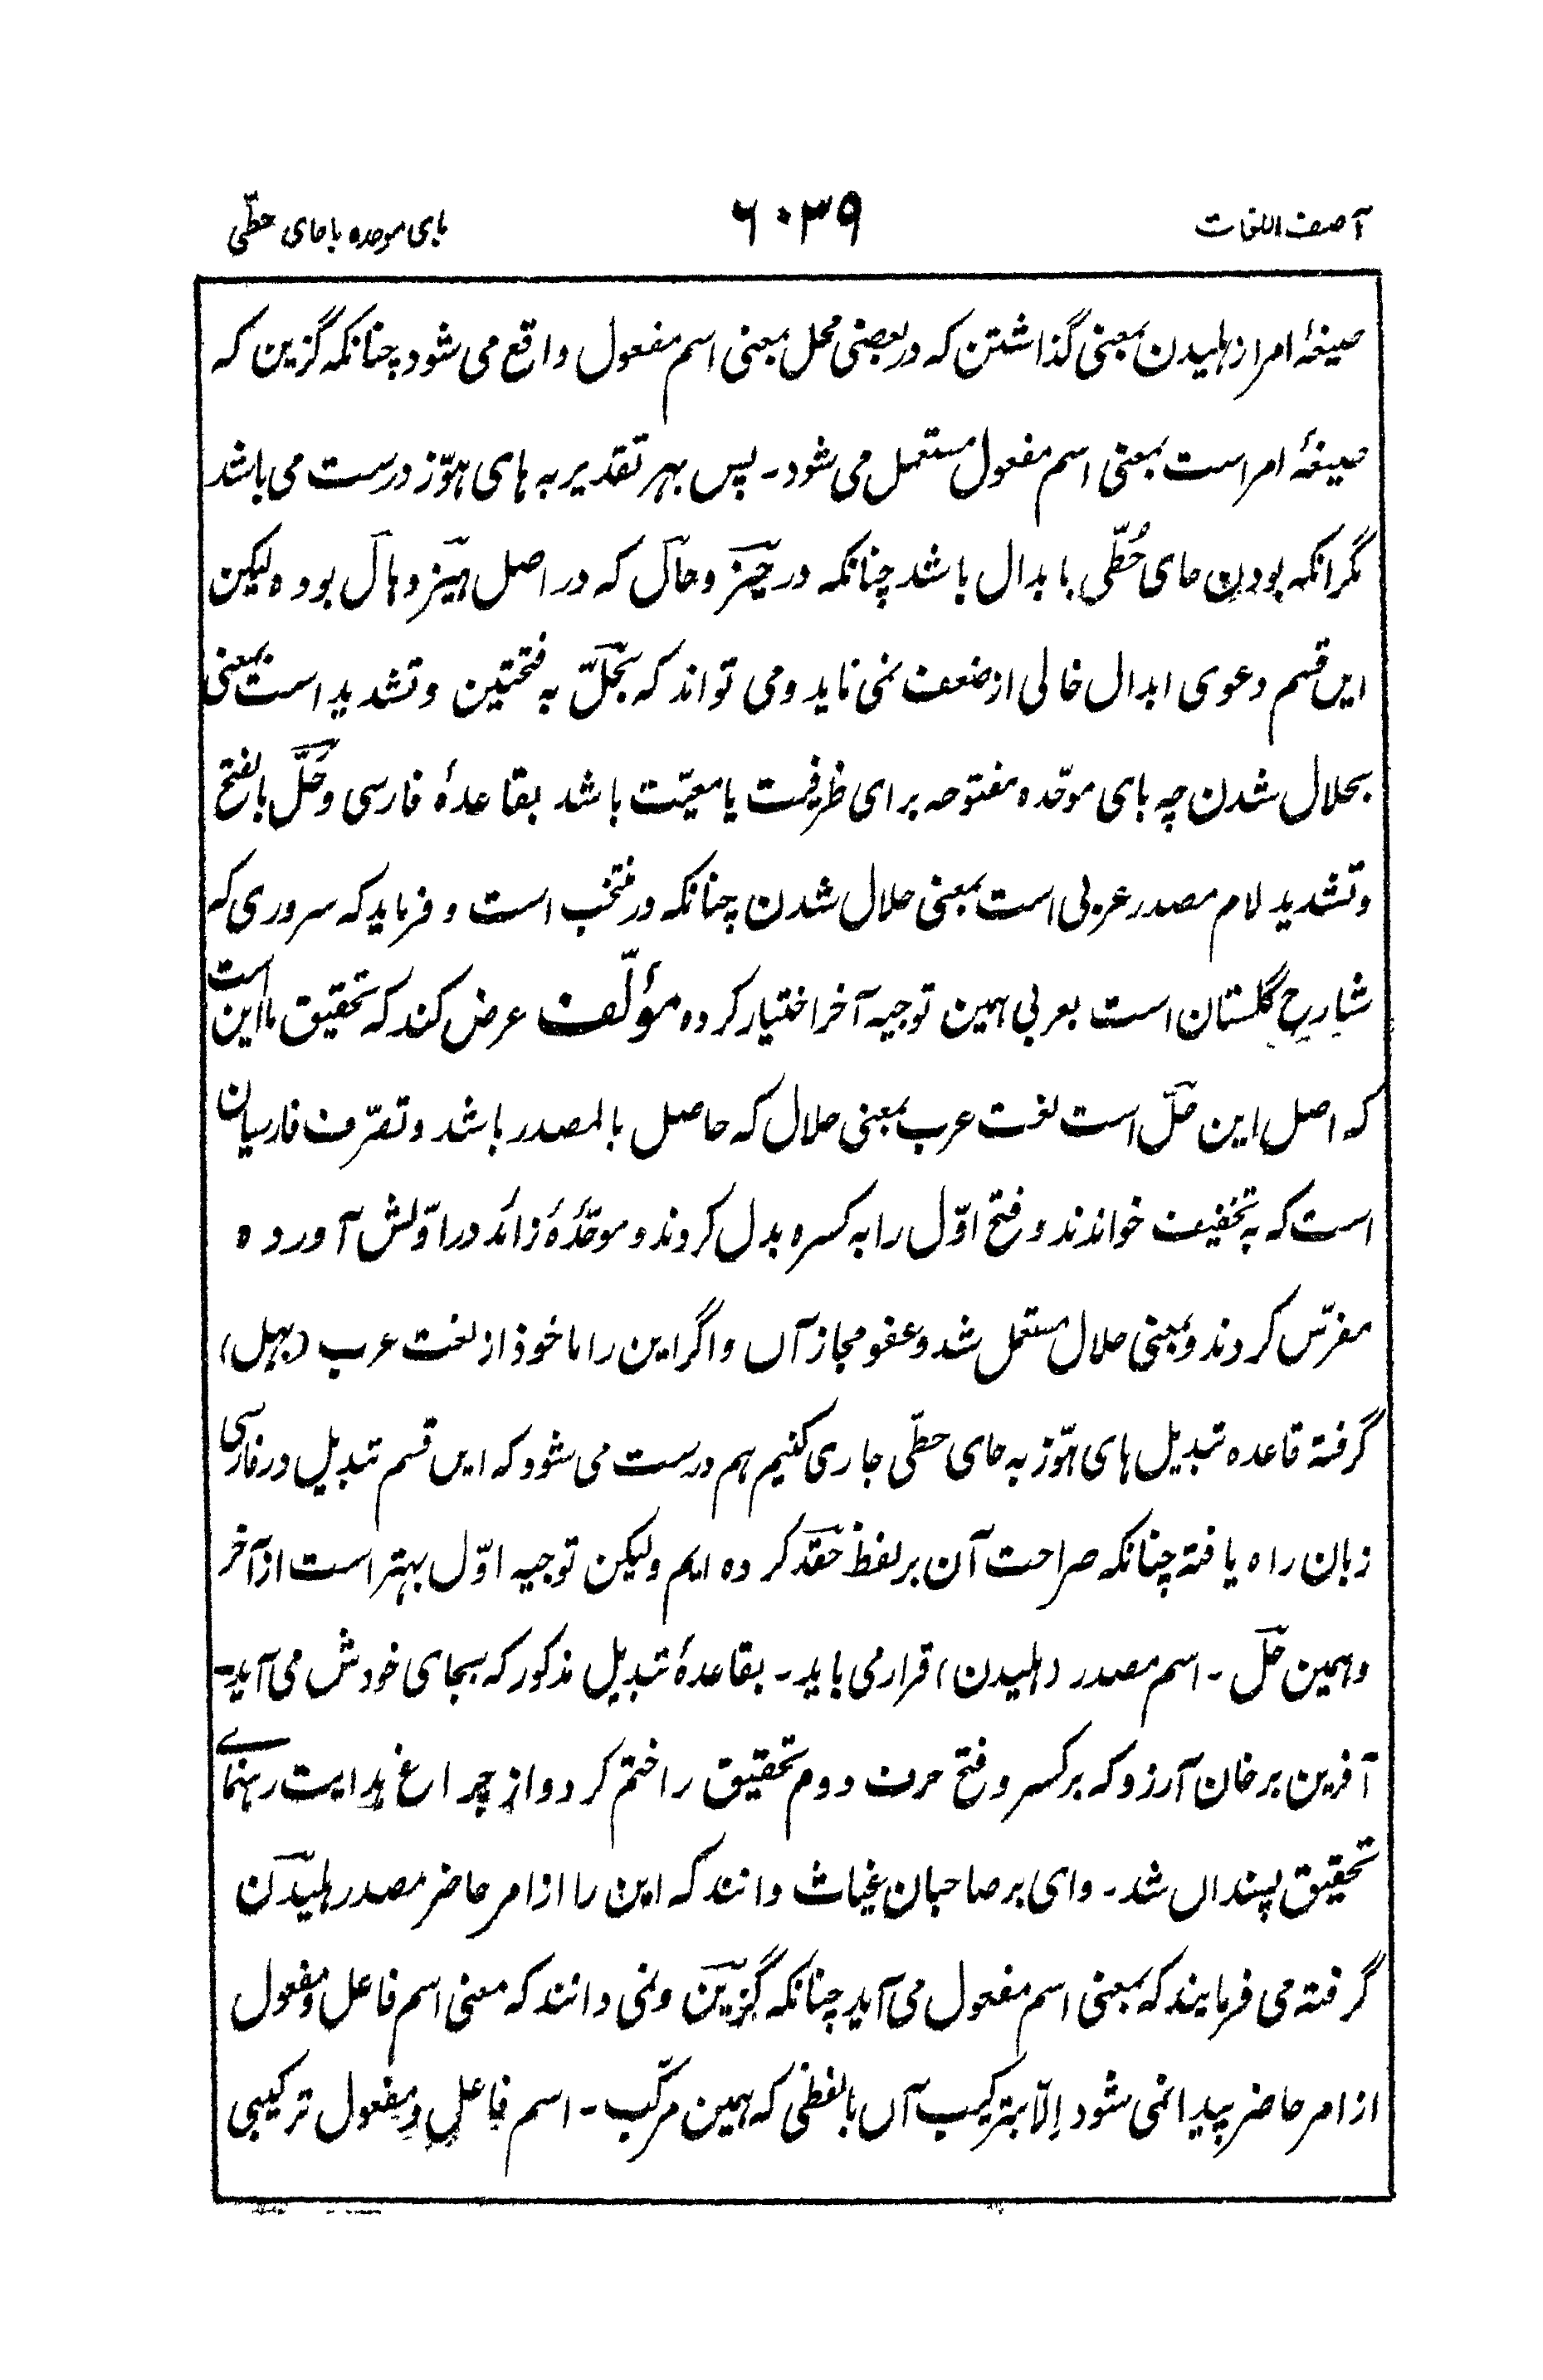 آصف اللغات
۶۰۳۹
بای موحده با حای حطّی
صیغهٔ امر از هلیدن بمعنی گذاشتن که در بعضی محل بمعنی اسم مفعول واقع می شود چنانکه گزین که
صیغهٔ امر است بمعنی اسم مفعول مستعمل می شود۔ پس بهر تقدیر به های هوّز درست می باشد
مگر انکه بودن حای حُطّی با بدال باشد چنانکه در حیز و حال که در اصل هیز و هال بوده لیکن
ایں قسم دعوی ابدال خالی از ضعف نمی ناید و می تواند که بحَلّ به فتحتین و تشدید است بمعنی
بحلال شدن چه بای موحّده مفتوحه برای ظرفیت یا معیّت باشد بقاعدهٔ فارسی و حَلّ بالفتح
و تشدید لام مصدر عربی است بمعنی حلال شدن چنانکه در منتخب است و فرماید که سروری که
شارح گلستان است بعربی همین توجیه آخر اختیار کرده مؤلّف عرض کند که تحقیق ما این است
که اصل این حلّ است لغت عرب بمعنی حلال که حاصل بالمصدر باشد و تصرّف فارسیان
است که به تخفیف خواندند و فتح اوّل را به کسره بدل کروند و موحّدهٔ زائد در اوّلش آورده
مفرّس کردند و بمعنی حلال مستعمل شد و عفو مجاز آں و اگر این را ماخوذ از لغت عرب (بهل)
گرفته قاعده تبدیل های هوّز به حای حطّی جاری کنیم هم درست می شود که ایں قسم تبدیل در فارسی
زبان راه یافته چنانکه صراحت آن بر لفظ حَقَد کرده ایم ولیکن توجیه اوّل بهتر است از آخر
و همین حَل ۔ اسم مصدر (هلیدن) قرار می یابد۔ بقاعدهٔ تبدیل مذکور که بجای خودش می آید۔
آفرین بر خان آرزو که بر کسر و فتح حرف دوم تحقیق را ختم کرد و از چراغ هدایت رهنمای
تحقیق پسنداں شد۔ وای بر صاحبان غیاث و انند که این را از امر حاضر مصدر هلیدن
گرفته می فرمایند که بمعنی اسم مفعول می آید چنانکه گزین و نمی دانند که معنی اسم فاعل و مفعول
از امر حاضر پیدا نمی شود اِلّا بترکیب آں با لفظی که همین مرکّب۔ اسم فاعل و مفعول ترکیبی